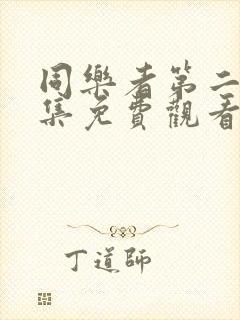 同樂者第二
集免費觀看
丁道師